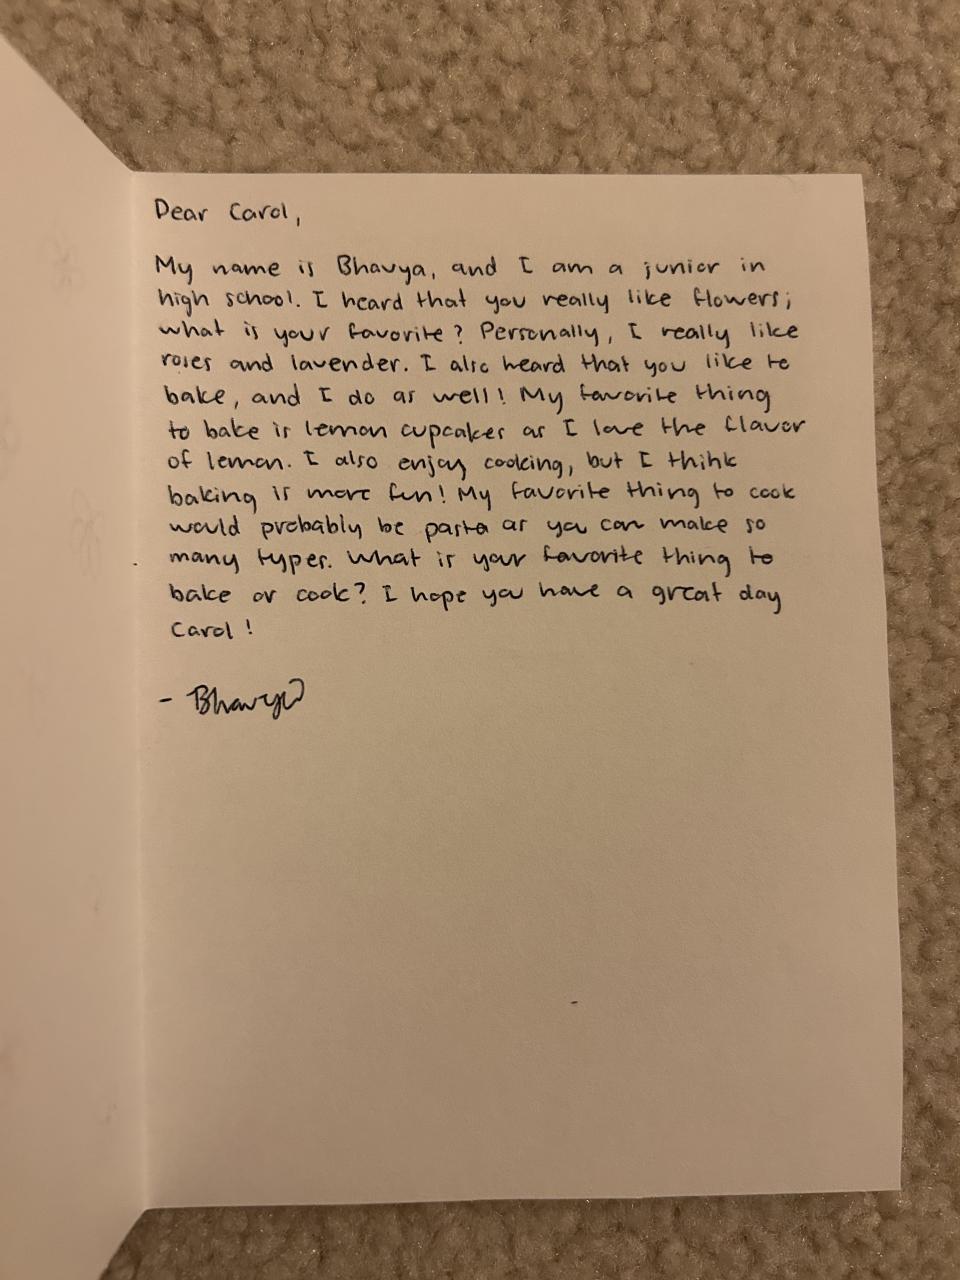 Dear Carol,
My name is Bhavya, and I am a junior in
high school. I heard that you really like flowers;
what is your favorite? Personally, I really like
roses and lavender. I also heard that you like to
bake, and I do as well! My favorite thing
to bake is lemon cupcakes as I love the flavor
of lemon. I also enjoy cooking, but I think
baking is more fun! My favorite thing to cook
would probably be pasta as you can make so
many types. What is your favorite thing to
bake or cook? I hope you have a great day
Carol!
- Bhavya